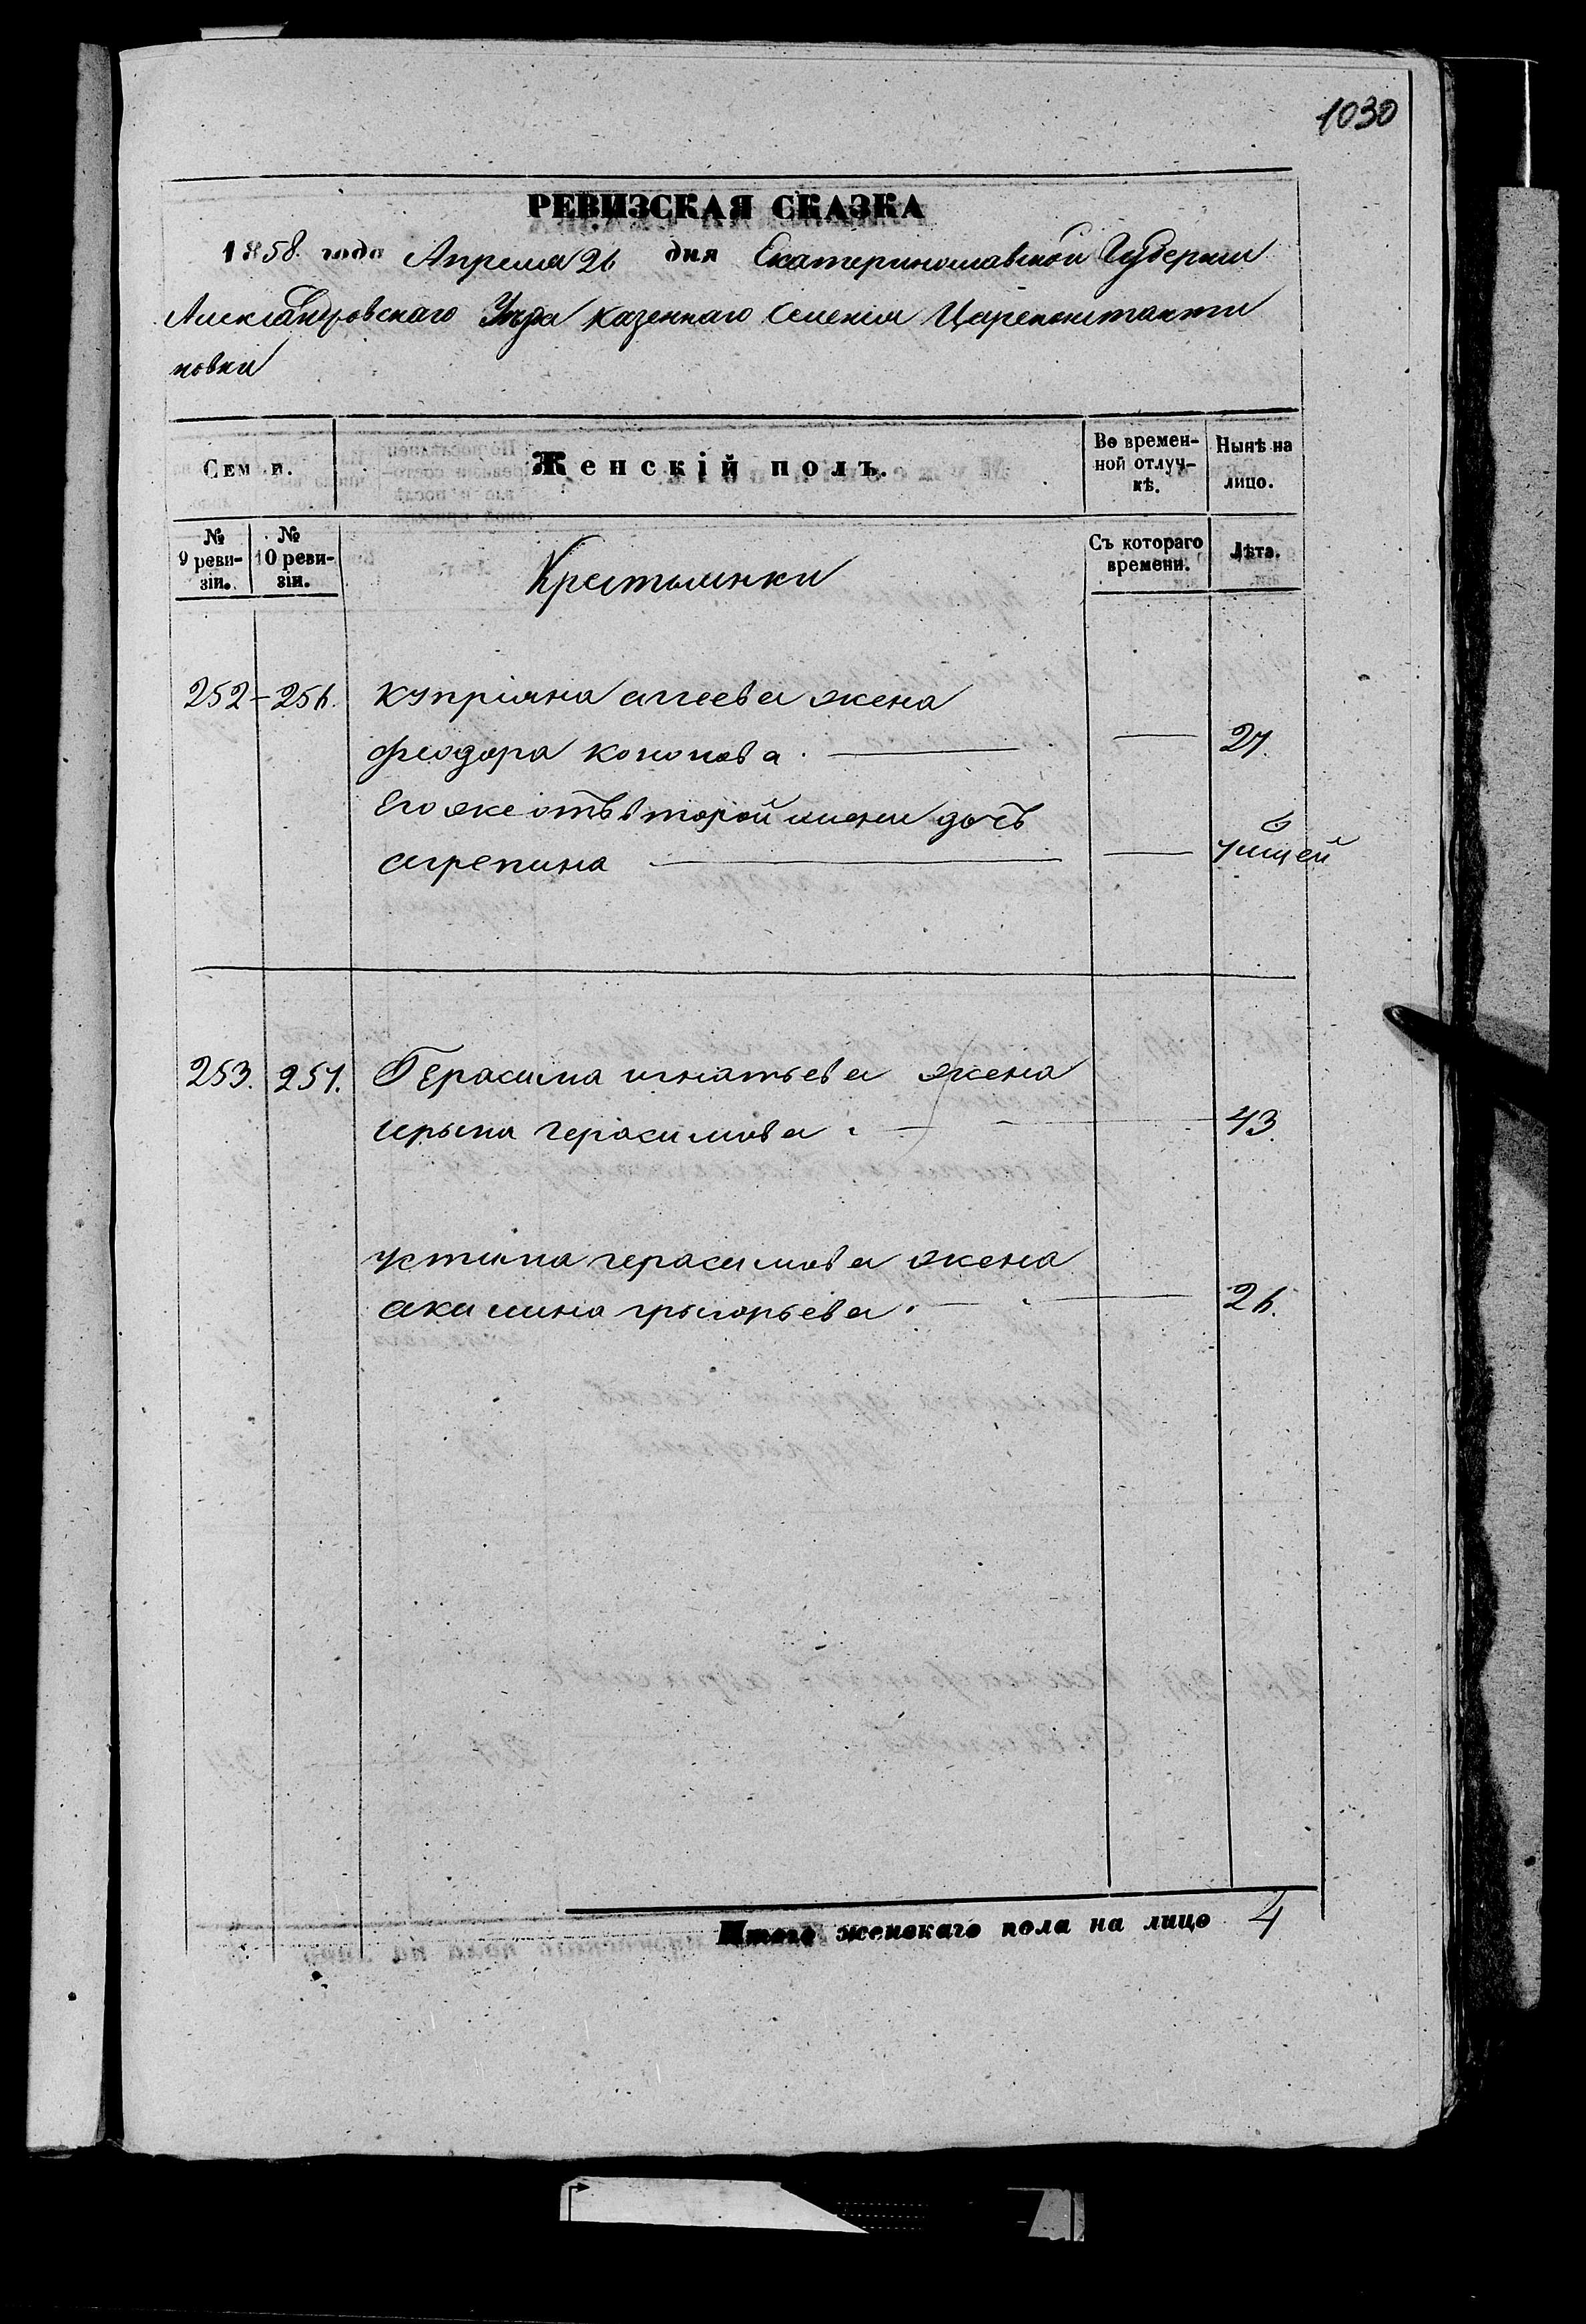 1030
РЕВИЗСКАЯ СКАЗКА
1858 года Апреля 26 дня Екатеринославской Губернии
Александровскаго Уезда казеннаго селения Цареконстанти
новки
Семьи.
Женскій полъ.
Во времен-
ной отлуч-
кѣ.
Нынѣ на
лицо.
№
9 реви-
зіи.
№
10 реви-
зіи.
Крестьянки
Съ котораго
времени.
Лѣта.
252 - 256. купріяна агеева жена
феодора кононова. — — 27.
Его же отъ второй жени дочь
агрепина — —
253. 257. Герасима игнатьева жена
ирына герасимова — 43.
устина герасимова жена
акилина грыгорьева. — 26.
Итого женскаго пола на лицо 4